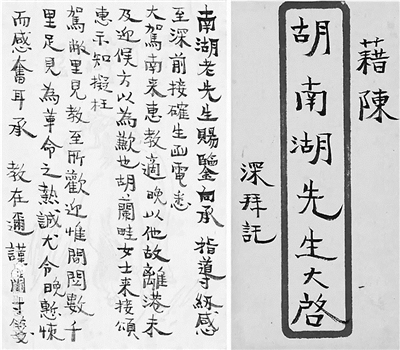 藉陳
胡南湖先生大啓
深拜託
南湖老先生賜鑒向承 指導紉感
至深前接確生函電悉
大駕南来惠教適晚以他故離港未
及迎候方以為歉也胡蘭畦女士来接頌
惠示知擬枉
駕敝里見教至所歡迎惟數千
里足見為革命之熱誠尤令晚慙悚
而感奮耳承 教在邇謹寸箋